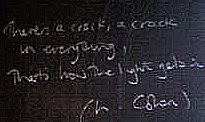 There's a crack, a crack
in everything,
That's how the light gets in
(L. Cohen)